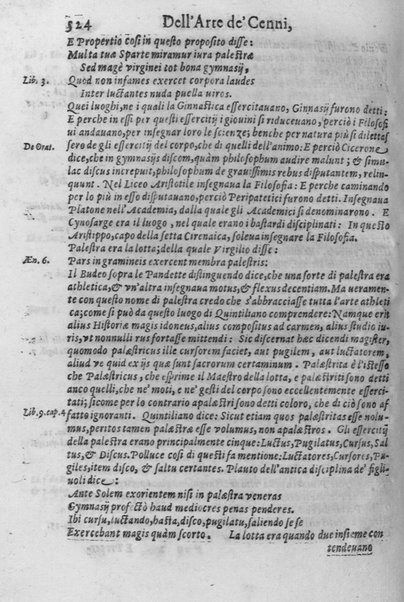 524 Dell'Arte de' Cenni,
E Propertio così in questo proposito disse:
Multa tua Sparte miramur iura palestræ
Sed magè virginei tot bona gymnasij,
Lib. 3. Quod non infames exercet corpora laudes
Inter luctantes nuda puella uiros.
Quei luoghi, ne i quali la Ginnastica essercitauano, Ginnasij furono detti:
E perche in essi per questi essercitij i giouini si riduceuano, perciò i Filosofi
ui andauano, per insegnar loro le scienze; benche per natura più si dilettas
De Orat. sero de gli essercitij del corpo, che di quelli dell'animo: E perciò Cicerone
dice, che in gymnasijs discom, quàm philosophum audire malunt; & simu-
lac discus increpuit, philosophum de grauissimis rebus disputantem, relin-
quunt. Nel Liceo Aristotile insegnaua la Filosofia: E perche caminando
per lo più in esso disputauano, perciò Peripatetici furono detti. Insegnaua
Platone nell'Academia, dalla quale gli Academici si denominarono. E
Cynosarge era il luogo, nel quale erano i bastardi disciplinati: In questo
Aristippo, capo della setta Cirenaica, soleua insegnare la Filosofia.
Palestra era la lotta; della quale Virgilio disse:
Æn. 6. Pars in gramineis exercent membra palestris:
Il Budeo sopra le Pandette distinguendo dice, che una sorte di palestra era
athletica, & vn'altra insegnaua motus, & flexus decentiam. Ma ueramente
con questo nome di palestra credo che s'abbracciasse tutta l'arte athleti
ca; come si può da questo luogo di Quintiliano comprendere: Namque erit
alius Historiæ magis idoneus, alius compositus ad carmen, alius studio iu-
ris, vt nonnulli rus fortasse mittendi: Sic discernat hæc dicendi magister,
quomodo palæstricus ille cursorem faciet, aut pugilem, aut luctatorem,
aliud ve quid ex ijs quæ sunt sacrorum certaminum. Palæstrita è l'istesso
che Palæstricus, che esprime il Maestro della lotta, e palæstriti sono detti
anco quelli, che ne' moti, e ne' gesti del corpo sono eccellentemente esserci-
tati; sicome per lo contrario apalæstri sono detti coloro, che di ciò sono af-
Lib. 9. cap. 4 fatto ignoranti. Quintiliano dice: Sicut etiam quos palæstritas esse nolu-
mus, peritos tamen palæstræ esse volumus, non apalæstros. Gli essercitij
della palestra erano principalmente cinque: Luctus, Pugilatus, Cursus, Sal-
tus, & Discus. Polluce così di questi fa mentione: Luctatores, Cursores, Pu-
giles, item disco, & saltu certantes. Plauto dell'antica disciplina de' figli-
uoli dice:
Ante Solem exorientem nisi in palæstra veneras
Gymnasij præfecto haud mediocres penas penderes.
Ibi cursu, luctando, hasta, disco, pugilatu, saliendo se se
Exercebant magis quàm scorto. La lotta era quando due insieme con
tendeuano